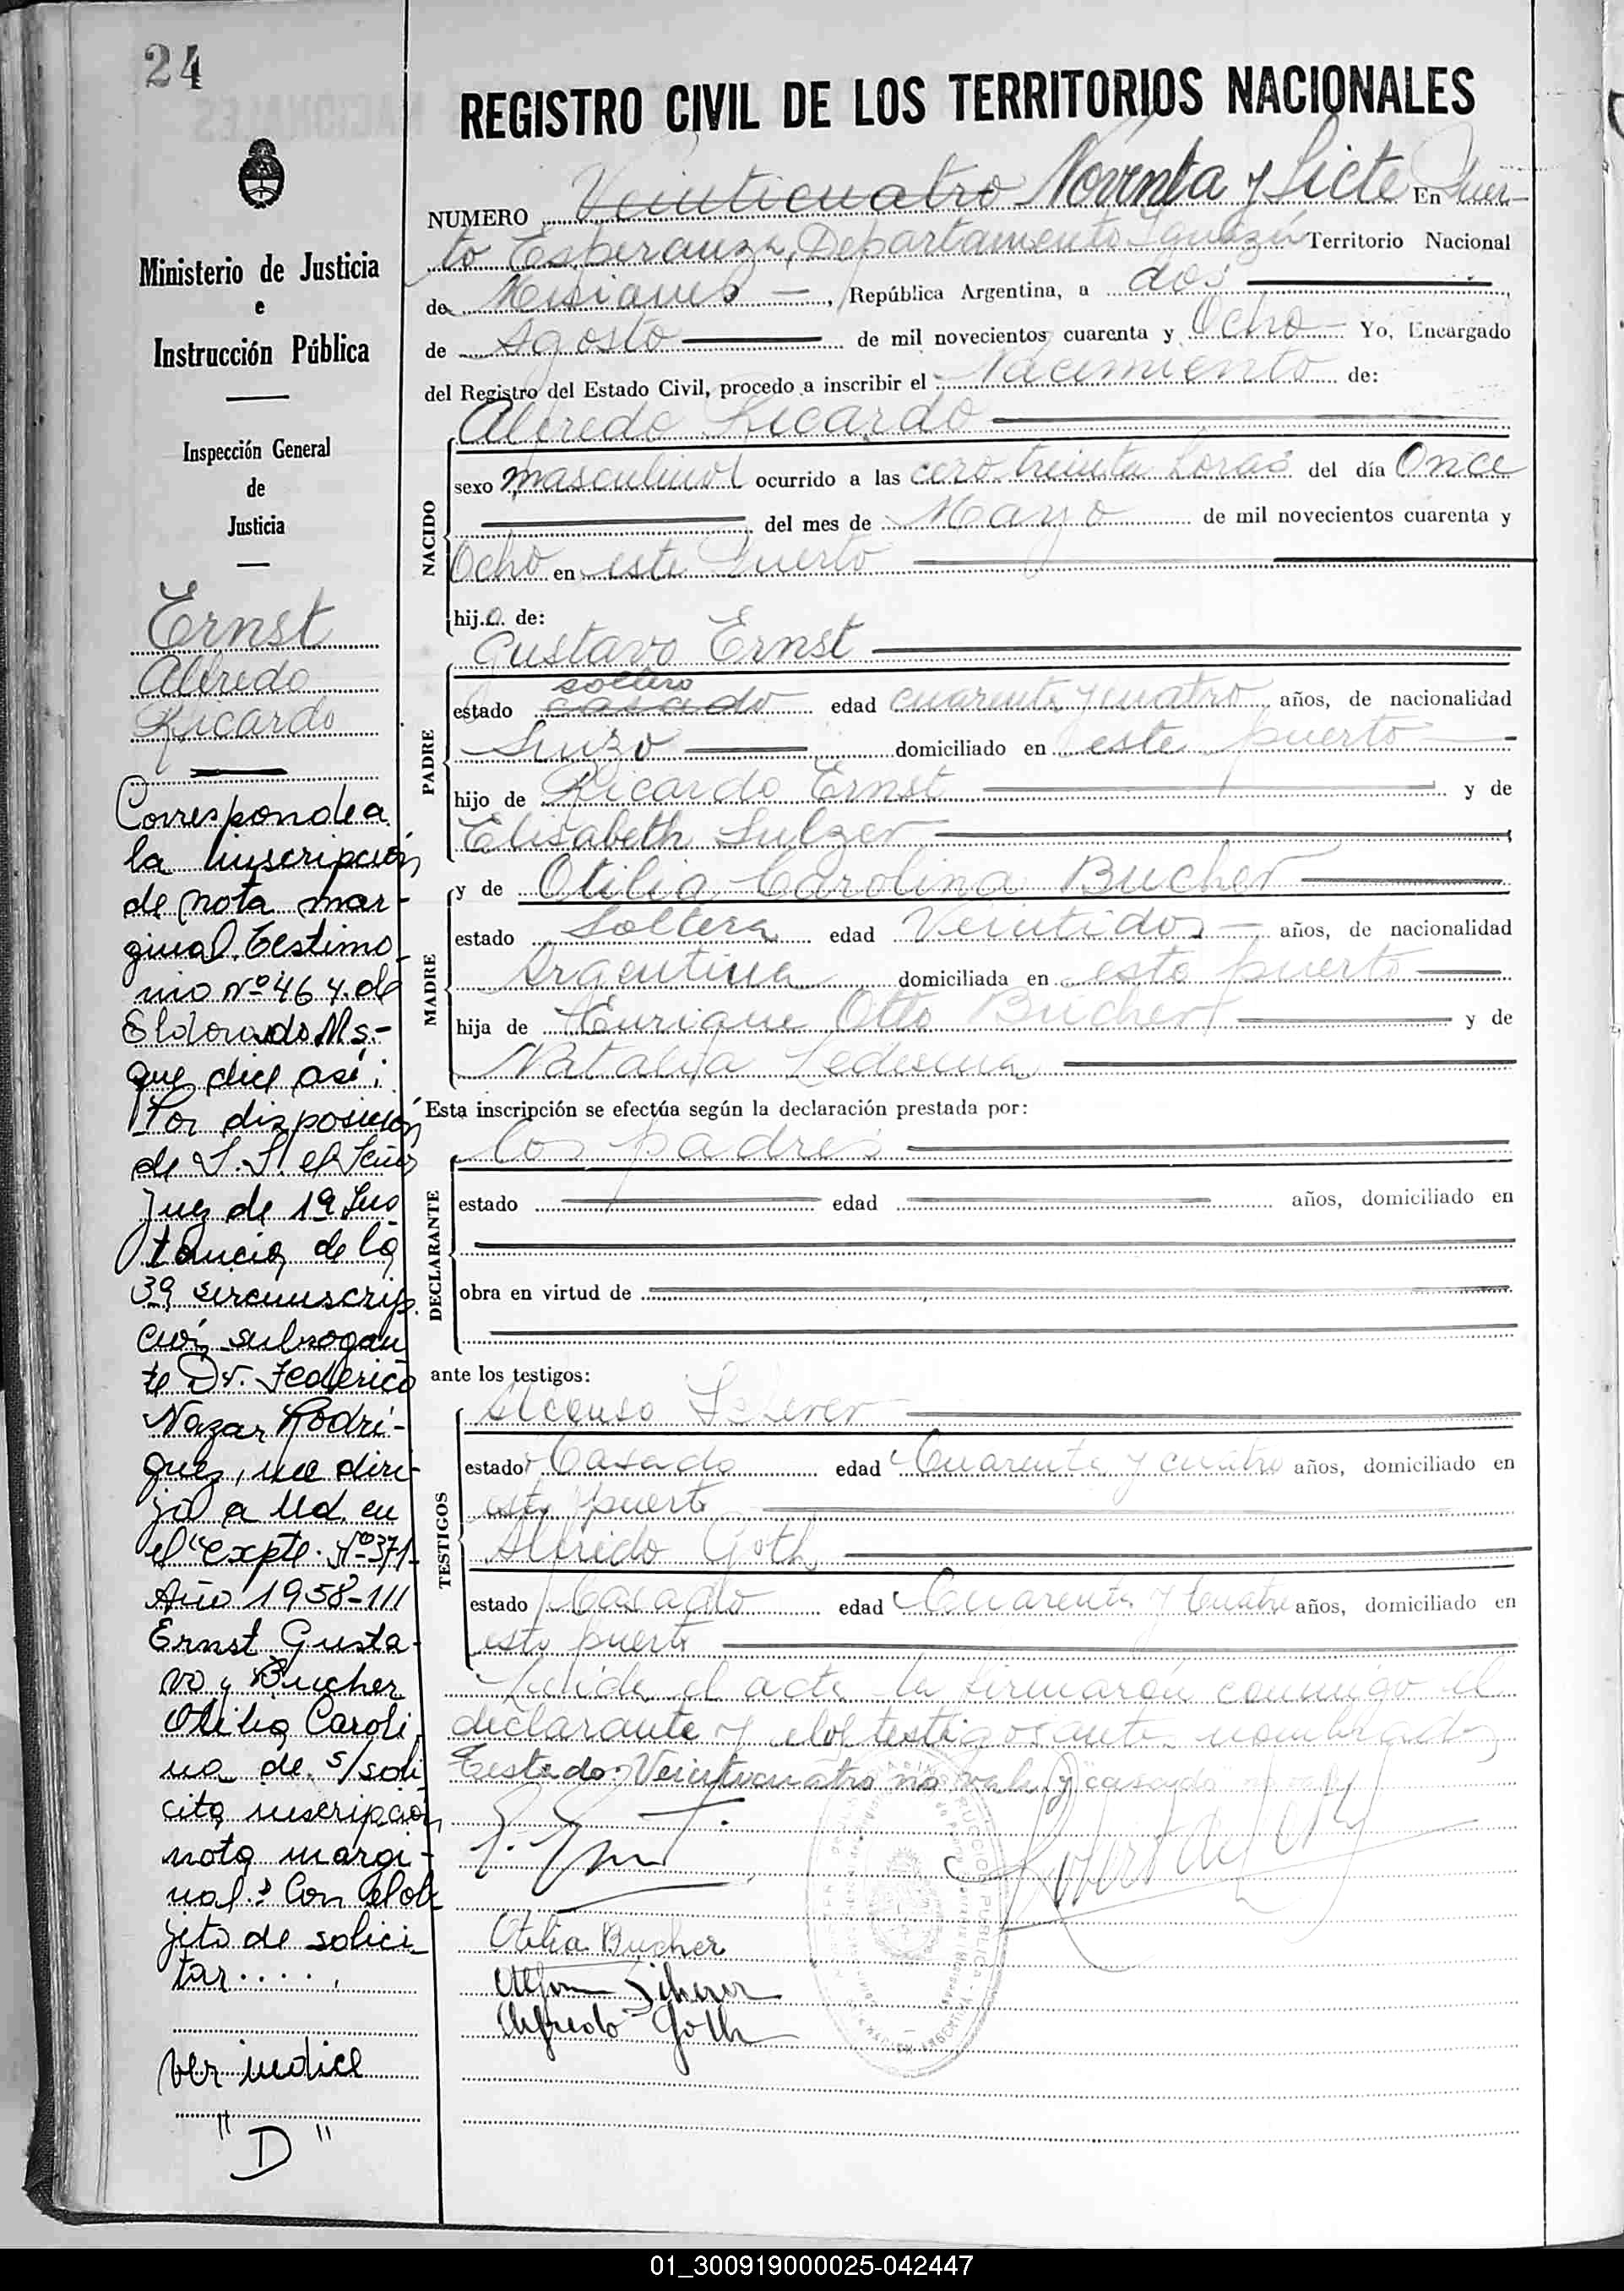 24
REGISTRO CIVIL DE LOS TERRITORIOS NACIONALES
Ministerio de Justicia
e
Instrucción Pública
Inspección General
de
Justicia
Ernst
Alfredo
Ricardo
Corresponde a
la inscripción
de nota mar-
ginal. Testimo-
nio Nº 464 de
Eldorado Ms.-
que dice así:
Por disposición
de S.S. el Señor
Juez de 1ª Ins
tancia de la
3ª circunscrip
ción subrogan
te Dr. Federico
Nazar Rodrí-
guez, me diri-
jo a Ud. en
el "expte. Nº 371-
Año 1958-III
Ernst Gusta-
vo y Bucher
Otilia Caroli
na de s/soli
cita inscripción
nota margi-
nal." Con el ob
jeto de solici-
tar.....
ver indice
"D"
NUMERO Veinticuatro Noventa y Siete En Puer-
to Esperanza, Departamento Iguazú Territorio Nacional
de Misiones, República Argentina, a dos
de Agosto de mil novecientos cuarenta y Ocho Yo, Encargado
del Registro del Estado Civil, procedo a inscribir el Nacimiento de:
Alfredo Ricardo
NACIDO
sexo masculino ocurrido a las cero treinta horas del día Once
del mes de Mayo de mil novecientos cuarenta y
Ocho en este Puerto
hijo de:
Gustavo Ernst
PADRE
soltero
estado casado edad cuarenta y cuatro años, de nacionalidad
Suizo domiciliado en este puerto
hijo de Ricardo Ernst y de
Elisabeth Sulzer
MADRE
y de Otilia Carolina Bucher
estado Soltera edad Veintidos años, de nacionalidad
Argentina domiciliada en este puerto
hija de Enrique Otto Bucher y de
Natalia Ledesma
Esta inscripción se efectúa según la declaración prestada por:
los padres
DECLARANTE
estado edad años, domiciliado en
obra en virtud de
ante los testigos:
TESTIGOS
Alfonso Scherer
estado Casado edad Cuarenta y cuatro años, domiciliado en
este puerto
Alfredo Goth
estado Casado edad Cuarenta y Cuatro años, domiciliado en
este puerto
Leída el acta la firmarón conmigo el
declarante y los testigos ante nombrados
Testado: Veinticuatro no vale y "casado"
Otilia Bucher
Alfons Scherer
Alfredo Goth
01_300919000025-042447